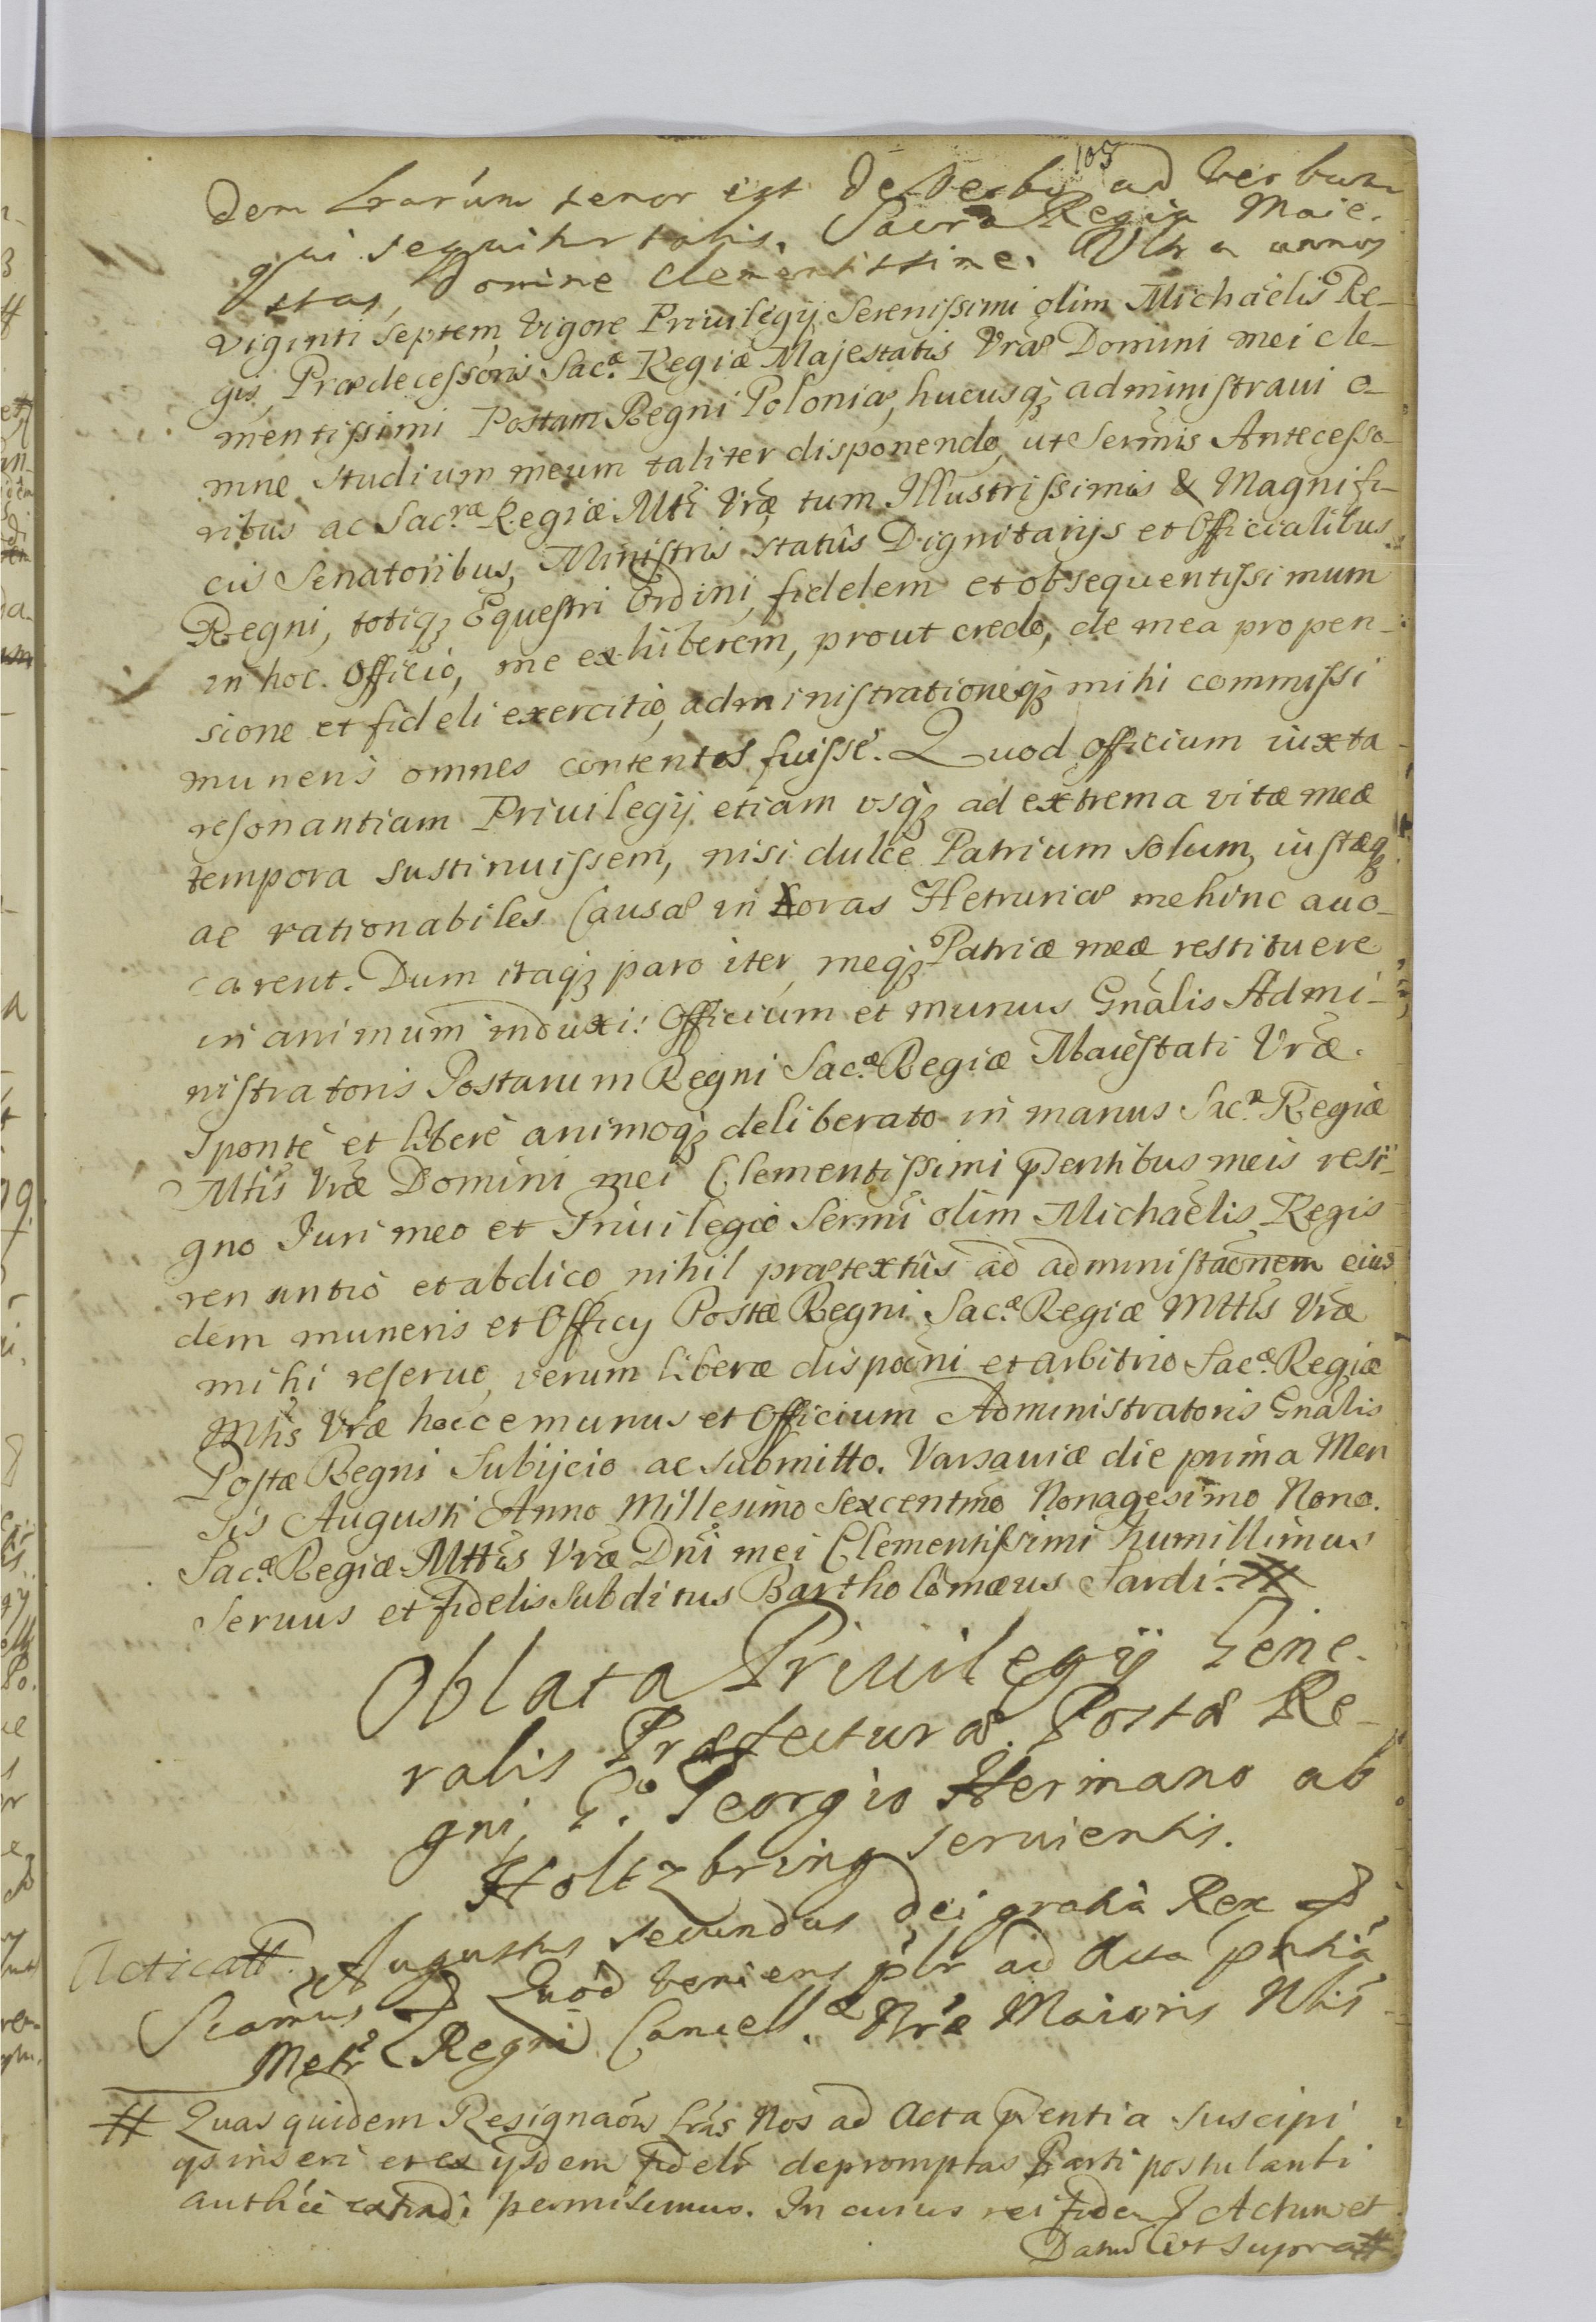 105
dem Lrarum tenor est de verbo ad verbum
qui sequitur talis. Sacra Regia Maie-
stas, Domine Clementissime. Ultra annos
viginti septem, vigore Priuilegij Serenissimi olim Michaëlis Re-
gis, Prædecessoris Sacæ. Regiæ Majestatis Vræ Domini mei cle-
mentissimi Postam Regni Poloniæ, hucusq; administraui o-
mne studium meum taliter disponendo, ut Sermis Antecesso-
ribus ac Sacræ Regiæ Mtti Vræ, tum Illustrissimis & Magnifi-
cis Senatoribus, Ministris statûs Dignitarijs et Officialibus
Regni, totiq; Equestri Ordini, fidelem et obsequentissimum
in hoc Officio, me exhiberem, prout credo, de mea propen-
sione et fideli exercitio, administrationeq; mihi commissi
muneris omnes contentos fuisse. Quod officium iuxta
resonantiam Priuilegij etiam vsq; ad extrema vitæ meæ
tempora sustinuissem, nisi dulce Patrium solum, iustæq;
ac rationabiles Causæ in horas Hetruriæ me hinc auo-
carent. Dum itaq; paro iter, meq; Patriæ meæ restituere
in animum induxi: Officium et munus Gnalis Admi-
nistratoris Postarum Regni Sacæ. Regiæ Maiestati Vræ.
sponte et libere animoq; deliberato in manus Sacæ Regiæ
Mttis Vræ Domini mei Clementissimi pñentibus meis resi-
gno Juri meo et Priuilegio Sermi olim Michaëlis Regis
renuntio et abdico nihil prætextûs ad administraonem eius
dem muneris et Officij Postæ Regni Sacæ. Regiæ Mttis Vræ
mihi reseruo, verum liberæ disponi et arbitrio Sacæ. Regiæ
Mttis Vræ hocce munus et Officium Administratoris Gnalis
Postæ Regni Subijcio ac submitto. Varsauiæ die prima Men
sis Augusti Anno Millesimo Sexcentmo Nonagesimo Nono.
Sacæ. Regiæ Mttis Vræ Dni mei Clementissimi humillimus
Seruus et fidelis subditus Bartholomæus Sardi. #
Oblata Priuilegij Gene-
ralis Præfecturæ Postæ Re-
gni, G. Georgio Hermano ab
Holtzbring seruientis.
Acticatt. Augustus secundus Dei gratia Rex
Quod veniens plr ad Acta pñtia
Metr. Regni Cancell. Nræ Maioris
# Quas quidem Resignaõis Lras Nos ad Acta pñentia suscipi
inseri et ex ijsdem fidelr depromptas Parti postulanti
authce extradi permisimus. In cuius rei fidem Actum et
Datum vt supra #